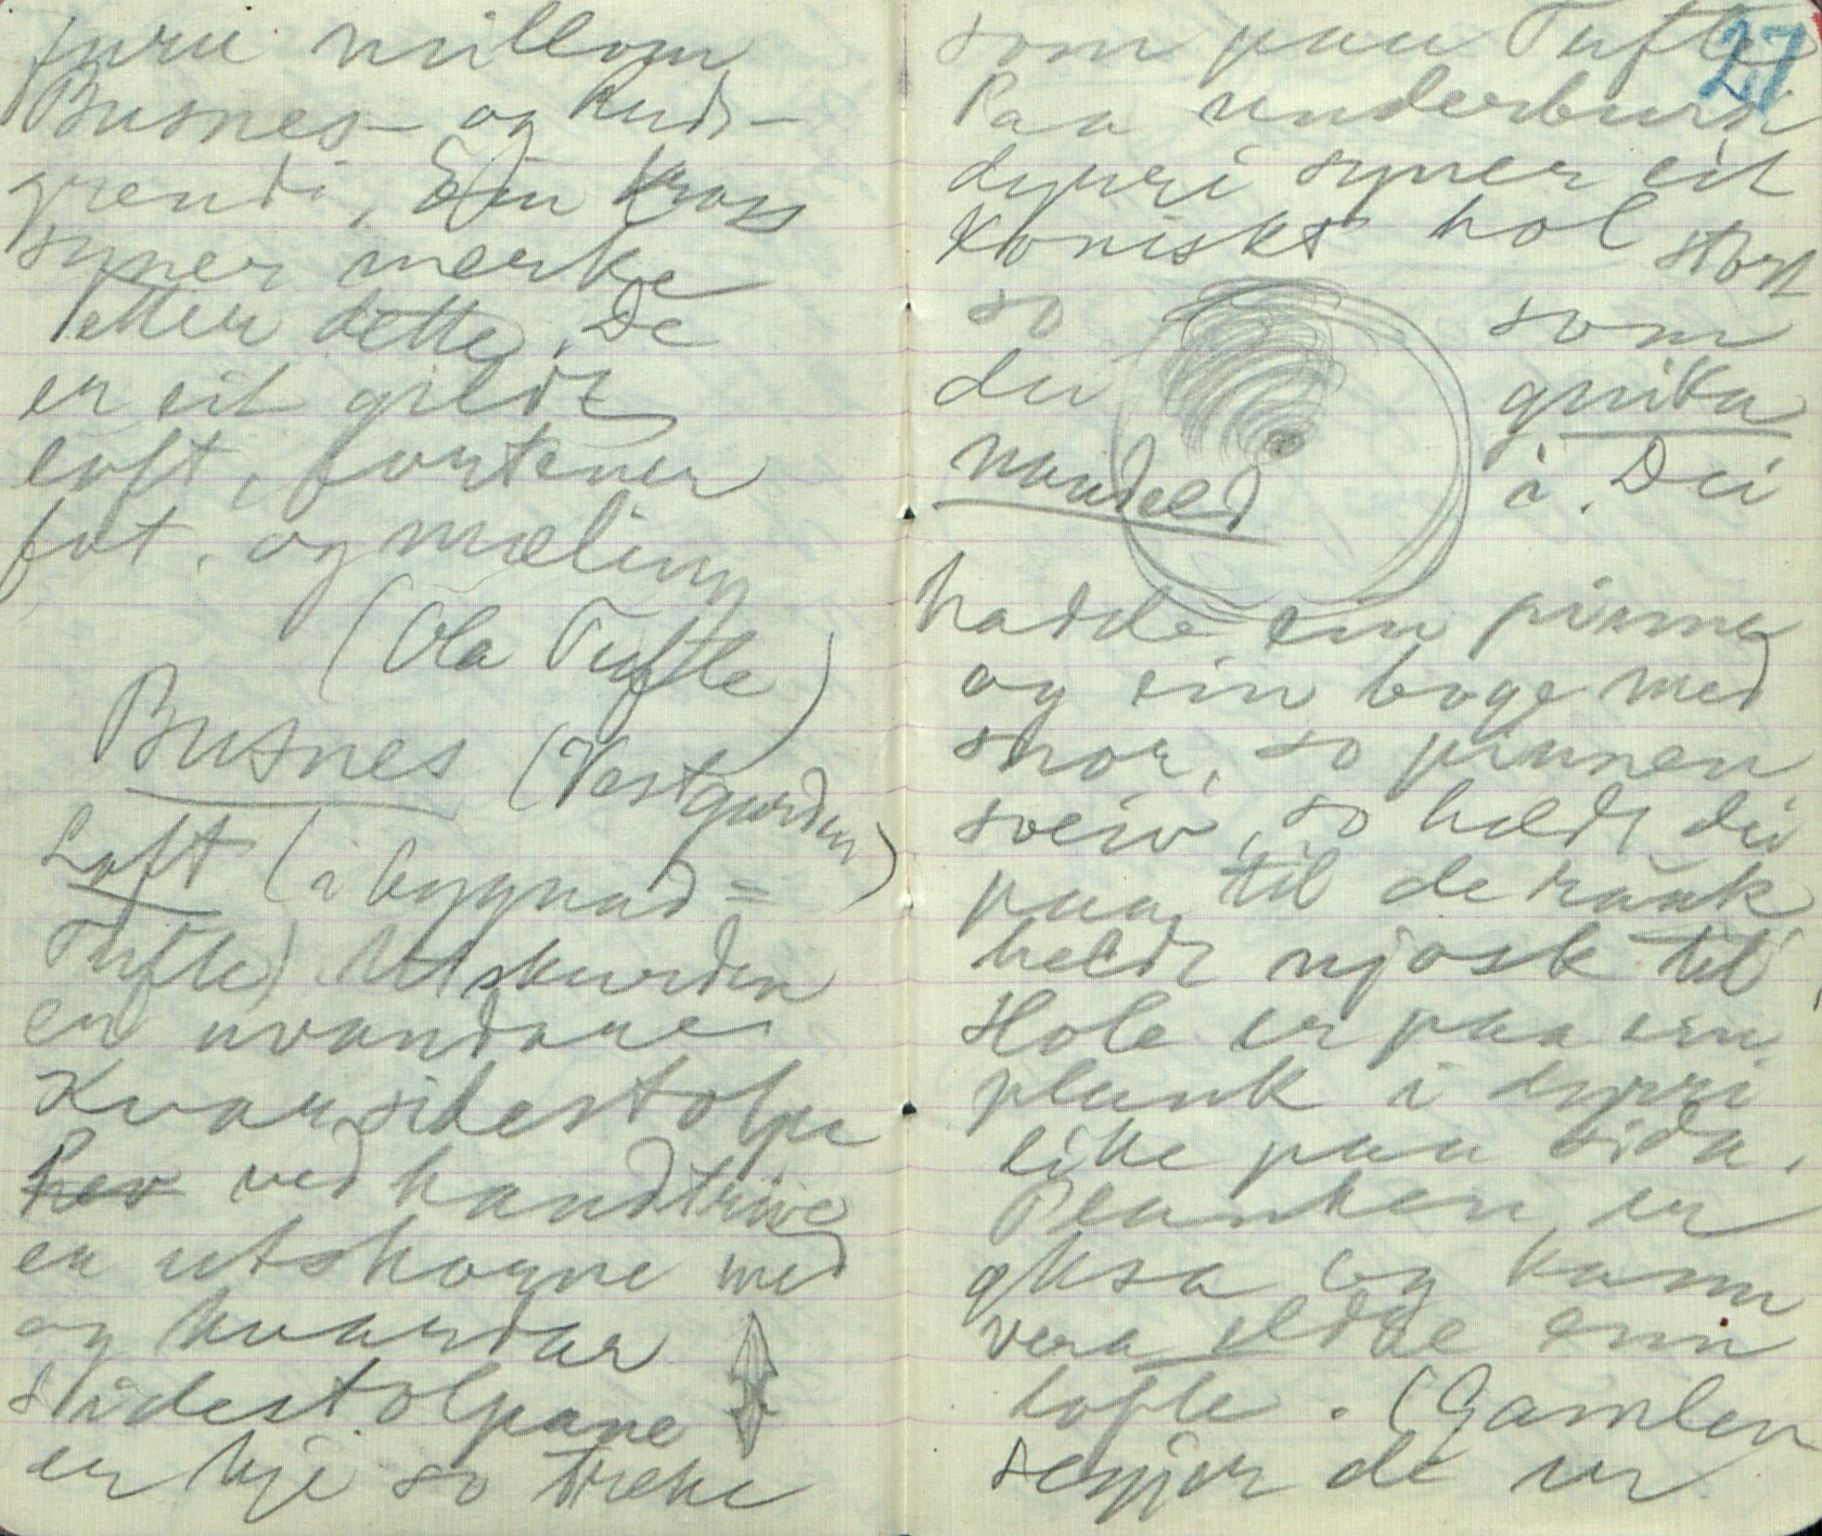 furu millom
Busnes- og Ruds-
grendi, Ein kross
syner merke
etter dette. De
er eit gildt
loft, fortener
fot. og mæling
(Ola Tufte)
Busnes (Vestgarden)
Loft (i bygnad =
Tufte) Utskurden
er uvandare
Kvar sidestolpe
ved handtrive
er utskogne med
og kvardar
sidestolpane
er kje so trekt
27
som paa Tufte
Paa underburs
dynni syner eit
koniskt hol stort
so som
dei gnika
naudeld i. Dei
hadde ein pinne
og ein boge med
snor, so pinnen
sveiv, so heldt dei
paa til de rauk
heldt njosk til
Hole er paa ein
plank i dyrri
like paa sida.
Planken er
øksa og kann
vera eldre enn
lofte. (Gamlen
segjer de er